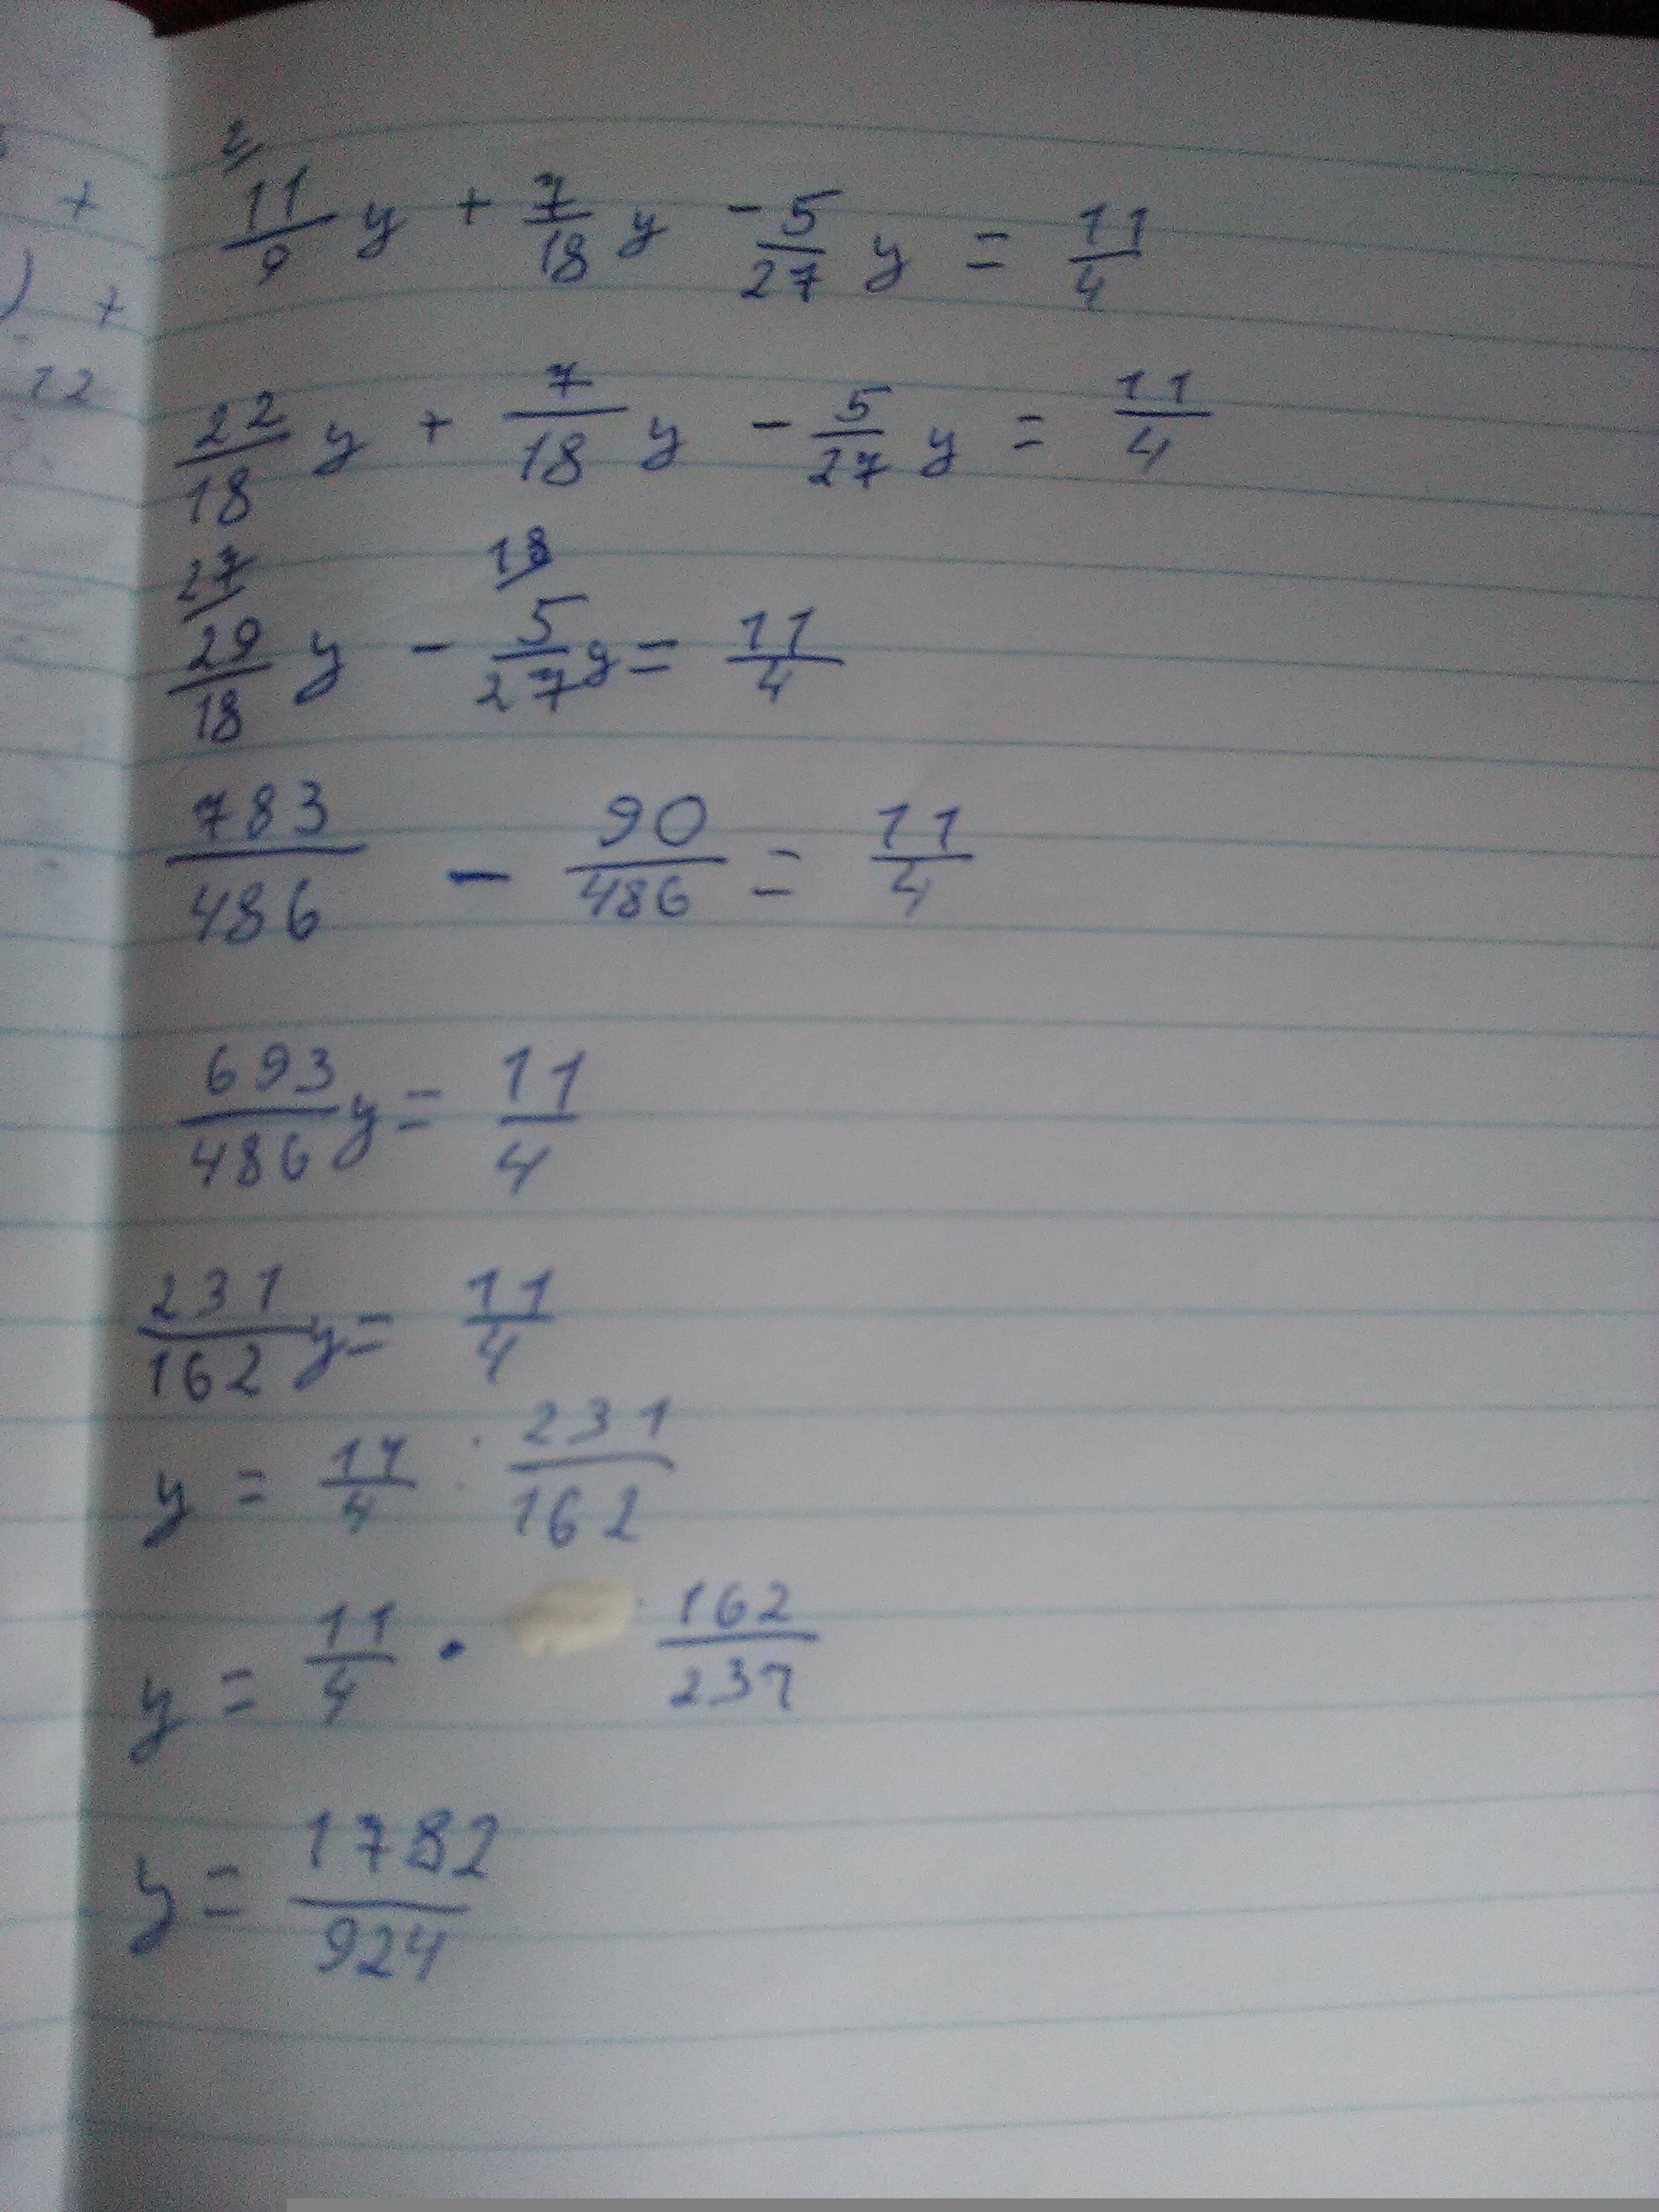 +
) +
12
2
11/9 y + 7/18 y - 5/27 y = 11/4
22/18 y + 7/18 y - 5/27 y = 11/4
27 18
29/18 y - 5/27 y = 11/4
783/486 - 90/486 = 11/4
693/486 y = 11/4
231/162 y = 11/4
y = 11/4 : 231/162
y = 11/4 · 162/231
y = 1782/924